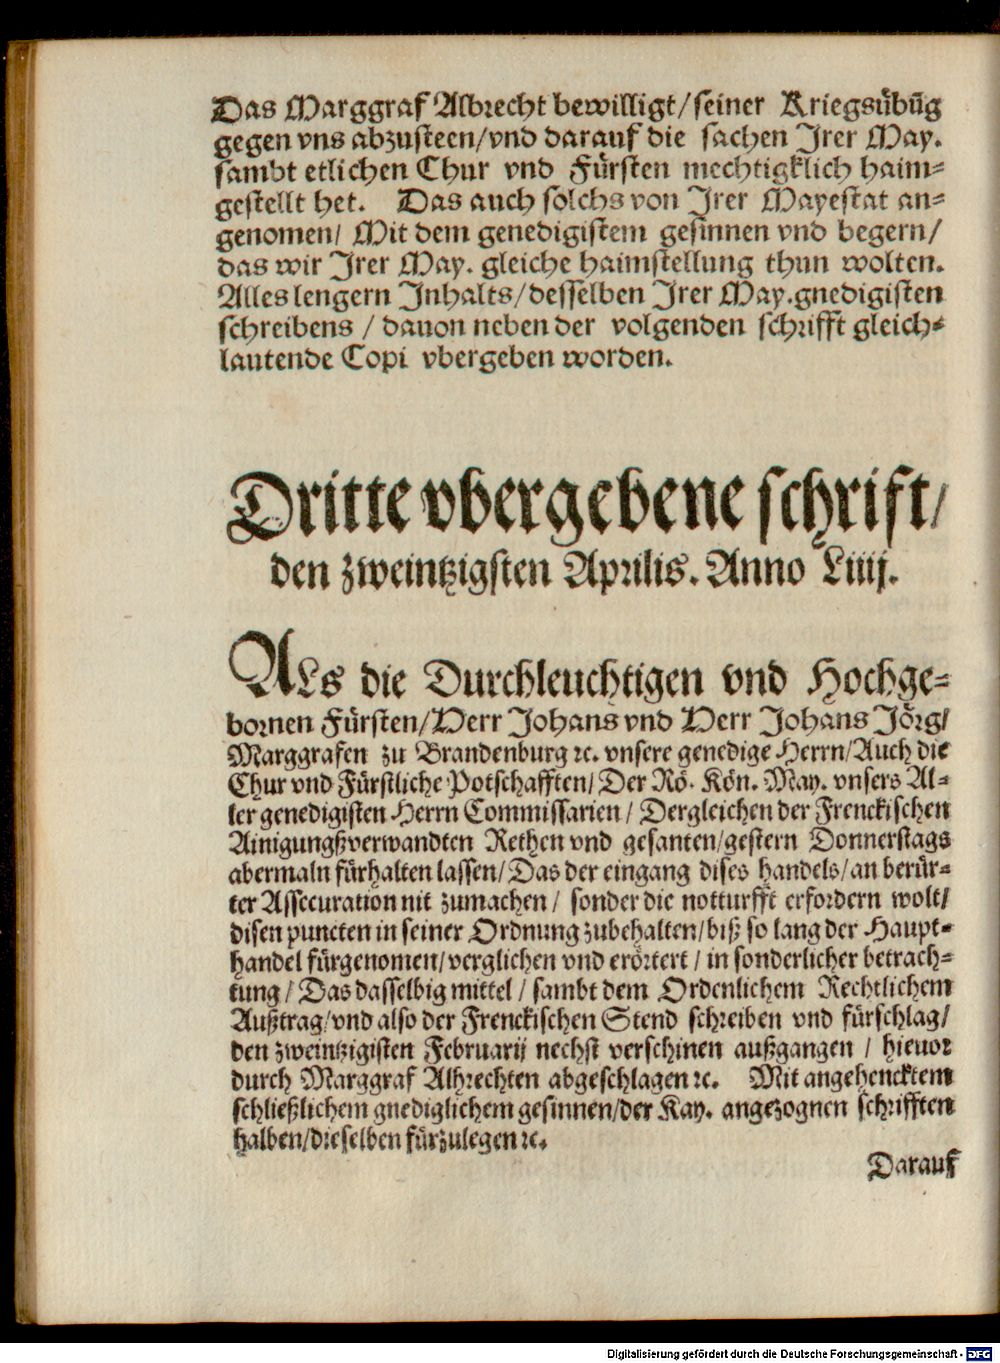 Das Marggraf Albrecht bewilligt/seiner Kriegsübūg
gegen vns abzusteen/vnd darauf die sachen Irer May.
sambt etlichen Chur vnd Fürsten mechtigklich haim-
gestellt het. Das auch solchs von Irer Mayestat an-
genomen/ Mit dem genedigistem gesinnen vnd begern/
das wir Irer May. gleiche haimstellung thun wolten.
Alles lengern Inhalts/desselben Irer May.gnedigisten
schreibens / dauon neben der volgenden schrifft gleich-
lautende Copi vbergeben worden.
Dritte vbergebene schrift/
den zweintzigsten Aprilis. Anno Liiij.
ALs die Durchleuchtigen vnd Hochge-
bornen Fürsten/Herr Johans vnd Herr Johans Jörg/
Marggrafen zu Brandenburg ⁊c. vnsere genedige Herrn/Auch die
Chur vnd Fürstliche Potschafften/Der Rö. Kön. May. vnsers Al-
ler genedigisten Herrn Commissarien / Dergleichen der Frenckischen
Ainigungßverwandten Rethen vnd gesanten/gestern Donnerstags
abermaln fürhalten lassen/Das der eingang dises handels/an berür-
ter Assecuration nit zumachen / sonder die notturfft erfordern wolt/
disen puncten in seiner Ordnung zubehalten/biß so lang der Haupt-
handel fürgenomen/verglichen vnd erörtert / in sonderlicher betrach-
tung / Das dasselbig mittel / sambt dem Ordenlichem Rechtlichem
Außtrag/vnd also der Frenckischen Stend schreiben vnd fürschlag/
den zweintzigisten Februarij nechst verschinen außgangen / hieuor
durch Marggraf Albrechten abgeschlagen ⁊c. Mit angehencktem
schließlichem gnediglichem gesinnen/der Kay. angezognen schrifften
halben/dieselben fürzulegen ⁊c.
Darauf
Digitalisierung gefördert durch die Deutsche Forschungsgemeinschaft - DFG